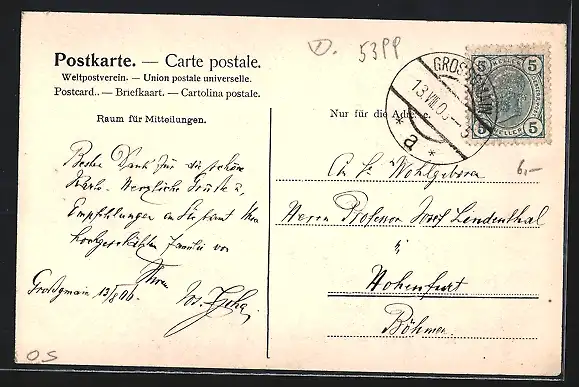 D. 53PP
Postkarte. — Carte postale.
Weltpostverein. — Union postale universelle.
Postcard.. — Briefkaart. — Cartolina postale.
Raum für Mitteilungen.
Nur für die Adresse.
GROSSGMAIN
13.VIII.06
* a *
5 5
HELLER HELLER
5 5
6,—
Besten Dank für die schöne
Karte. Herzliche Grüße u.
Empfehlungen an Sie samt Ihrer
hochgeschätzten Familie von
Ihrem
Großgmain 13/8 06. Jos.
Herrn Professor Josef Lindenthal
Hohenfurt
Böhmen.
OS